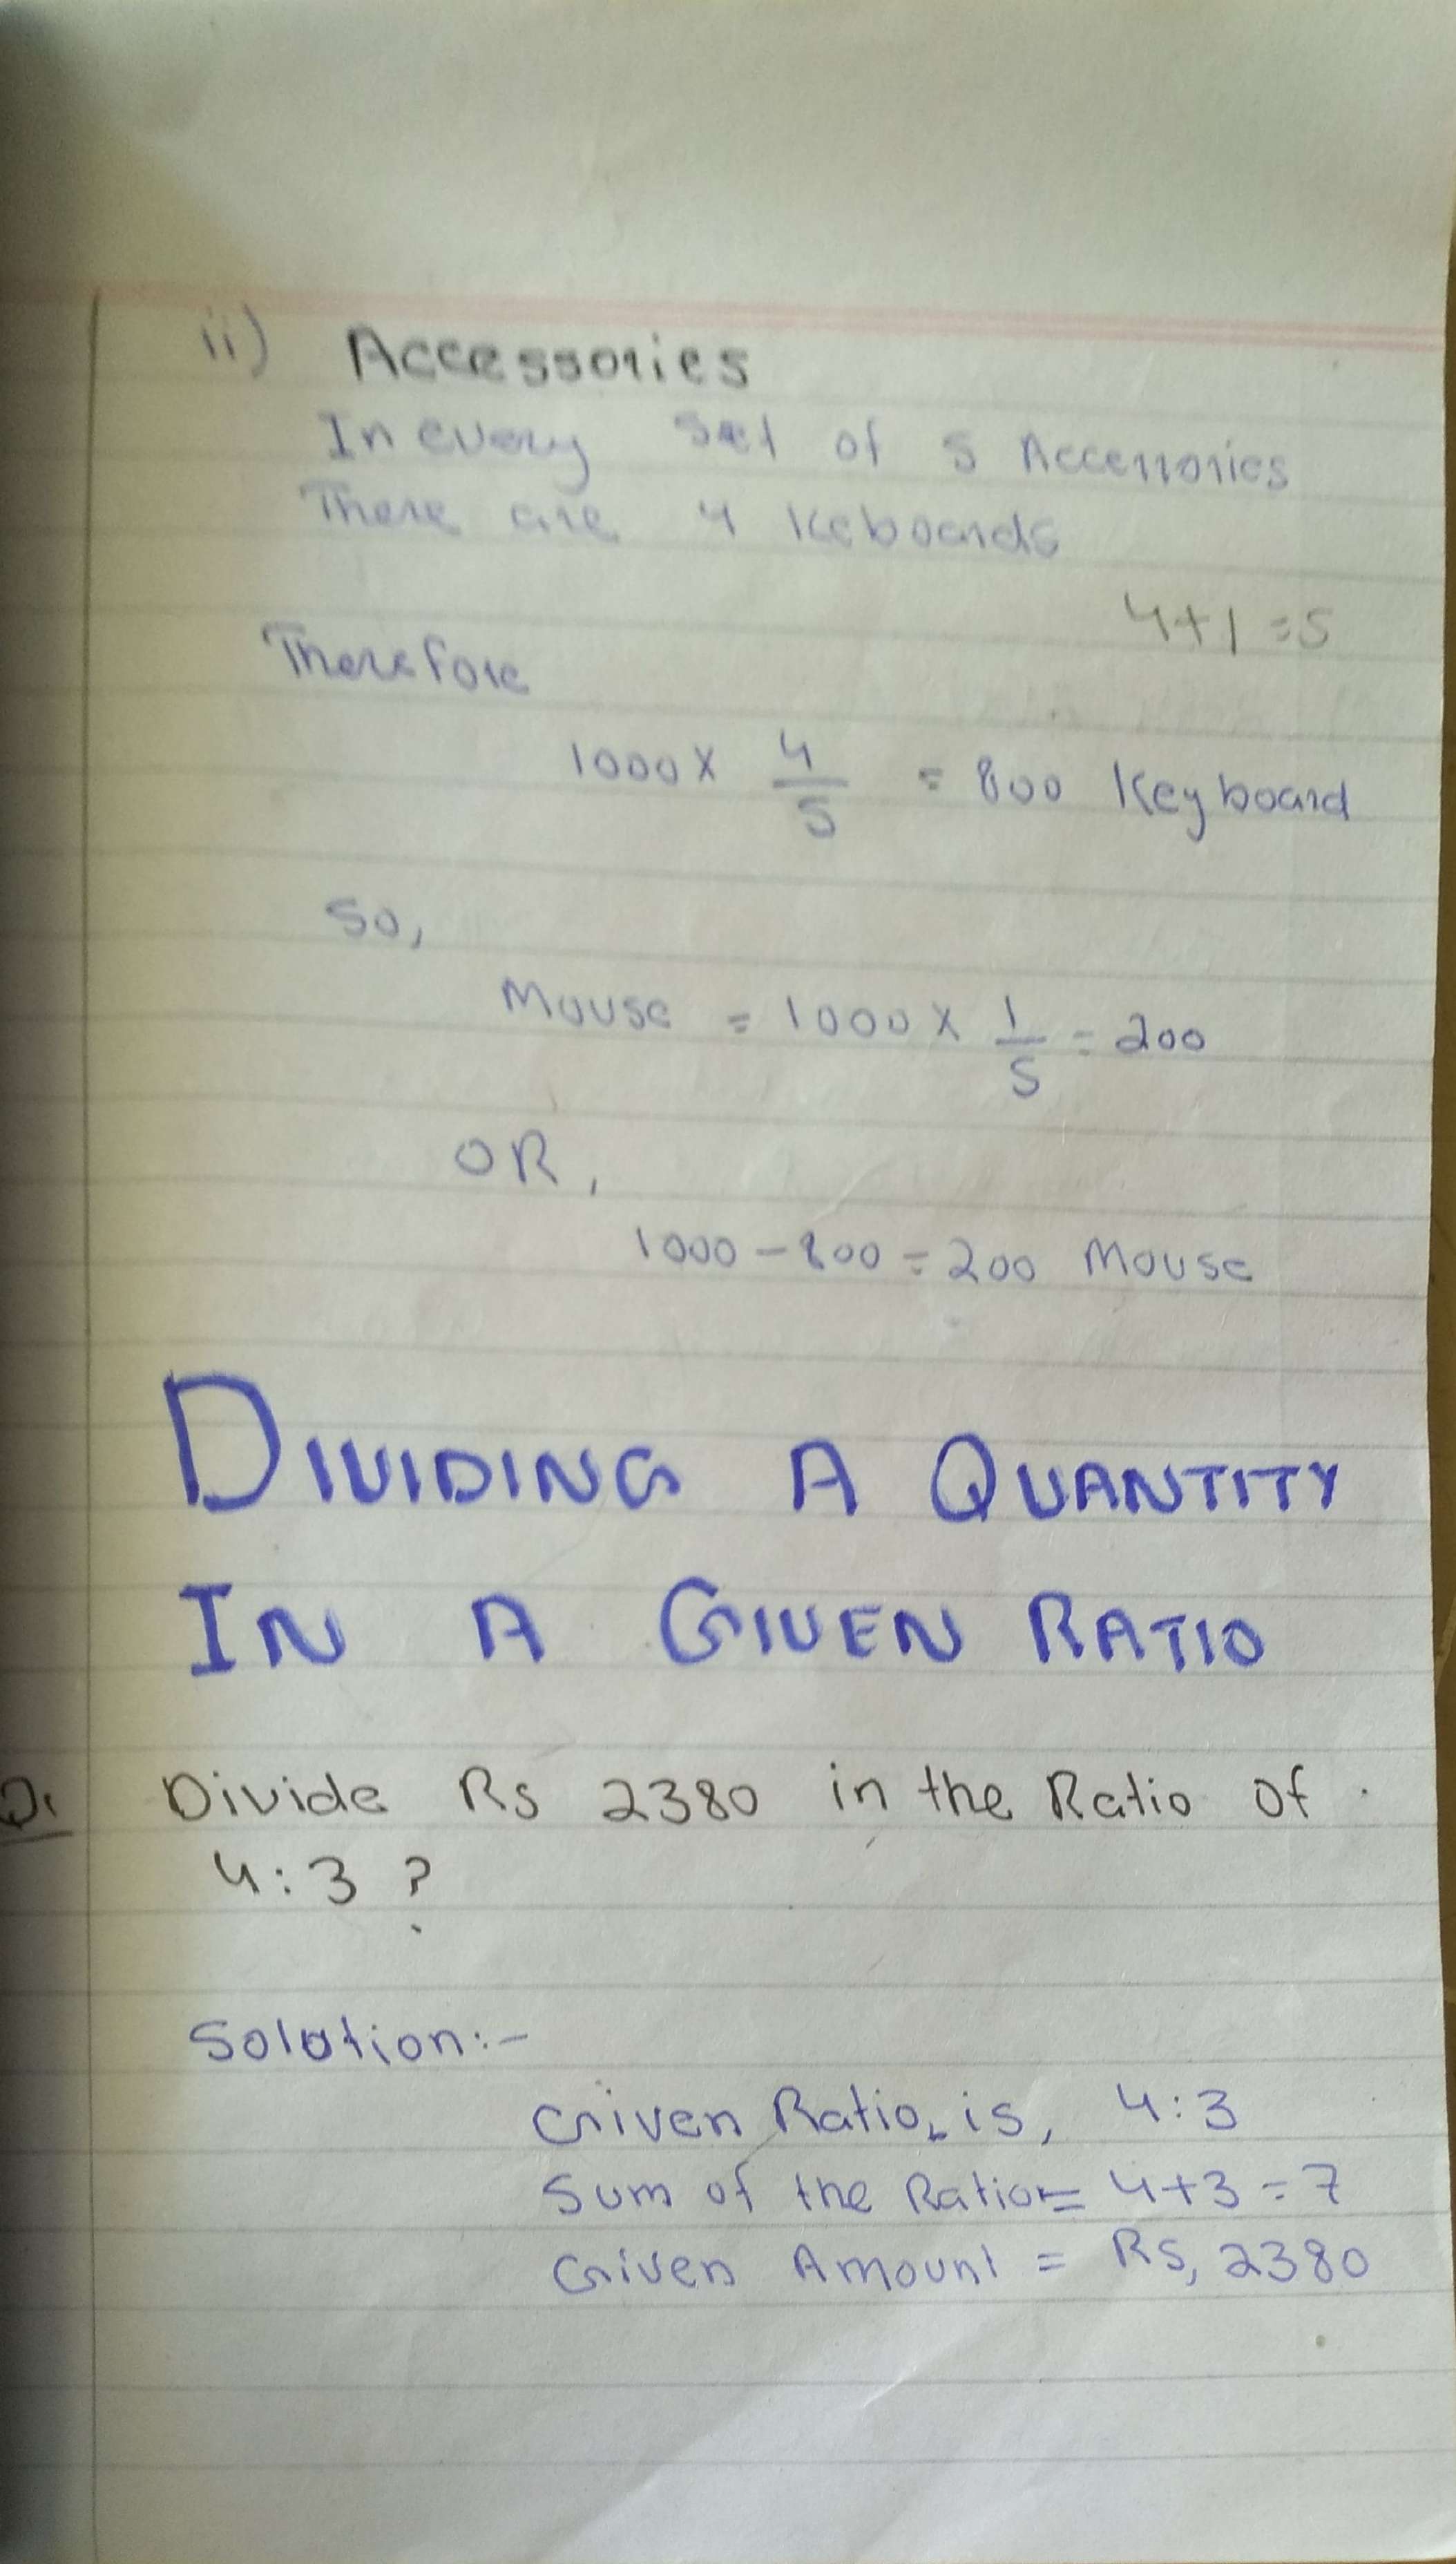 ii) Accessories
In every set of 5 Accessories
There are 4 Keboards
4+1=5
Therefore
1000 x 4/5 = 800 Keyboard
So,
Mouse = 1000 x 1/5 = 200
OR,
1000 - 800 = 200 Mouse
DIVIDING A QUANTITY
IN A GIVEN RATIO
Divide Rs 2380 in the Ratio of
4:3 ?
Solution:-
Given Ratio is, 4:3
Sum of the Ratio = 4+3=7
Given Amount = Rs, 2380